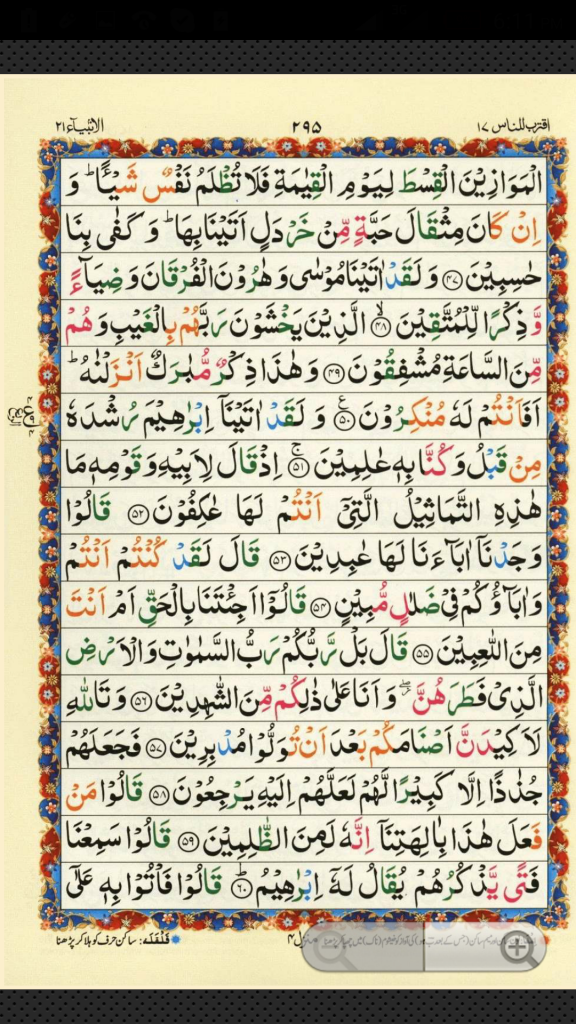 اقترب للناس ١٧
٢٩٥
الانبیآء ٢١
الْمَوَازِيْنَ الْقِسْطَ لِيَوْمِ الْقِيٰمَةِ فَلَا تُظْلَمُ نَفْسٌ شَيْـًٔا ؕ وَ
اِنْ كَانَ مِثْقَالَ حَبَّةٍ مِّنْ خَرْدَلٍ اَتَيْنَا بِهَا ؕ وَ كَفٰى بِنَا
حٰسِبِيْنَ ﴿٤٧﴾ وَ لَقَدْ اٰتَيْنَا مُوْسٰى وَ هٰرُوْنَ الْفُرْقَانَ وَ ضِيَآءً
وَّ ذِكْرًا لِّلْمُتَّقِيْنَ ۙ﴿٤٨﴾ الَّذِيْنَ يَخْشَوْنَ رَبَّهُمْ بِالْغَيْبِ وَ هُمْ
مِّنَ السَّاعَةِ مُشْفِقُوْنَ ﴿٤٩﴾ وَ هٰذَا ذِكْرٌ مُّبٰرَكٌ اَنْزَلْنٰهُ ؕ
اَفَاَنْتُمْ لَهٗ مُنْكِرُوْنَ ﴿٥٠﴾ ع وَ لَقَدْ اٰتَيْنَاۤ اِبْرٰهِيْمَ رُشْدَهٗ
مِنْ قَبْلُ وَ كُنَّا بِهٖ عٰلِمِيْنَ ۚ﴿٥١﴾ اِذْ قَالَ لِاَبِيْهِ وَ قَوْمِهٖ مَا
هٰذِهِ التَّمَاثِيْلُ الَّتِيْۤ اَنْتُمْ لَهَا عٰكِفُوْنَ ﴿٥٢﴾ قَالُوْا
وَجَدْنَاۤ اٰبَآءَنَا لَهَا عٰبِدِيْنَ ﴿٥٣﴾ قَالَ لَقَدْ كُنْتُمْ اَنْتُمْ
وَ اٰبَآؤُكُمْ فِيْ ضَلٰلٍ مُّبِيْنٍ ﴿٥٤﴾ قَالُوْۤا اَجِئْتَنَا بِالْحَقِّ اَمْ اَنْتَ
مِنَ اللّٰعِبِيْنَ ﴿٥٥﴾ قَالَ بَلْ رَّبُّكُمْ رَبُّ السَّمٰوٰتِ وَ الْاَرْضِ
الَّذِيْ فَطَرَهُنَّ ۖ وَ اَنَا عَلٰى ذٰلِكُمْ مِّنَ الشّٰهِدِيْنَ ﴿٥٦﴾ وَ تَاللّٰهِ
لَاَكِيْدَنَّ اَصْنَامَكُمْ بَعْدَ اَنْ تُوَلُّوْا مُدْبِرِيْنَ ﴿٥٧﴾ فَجَعَلَهُمْ
جُذٰذًا اِلَّا كَبِيْرًا لَّهُمْ لَعَلَّهُمْ اِلَيْهِ يَرْجِعُوْنَ ﴿٥٨﴾ قَالُوْا مَنْ
فَعَلَ هٰذَا بِاٰلِهَتِنَاۤ اِنَّهٗ لَمِنَ الظّٰلِمِيْنَ ﴿٥٩﴾ قَالُوْا سَمِعْنَا
فَتًى يَّذْكُرُهُمْ يُقَالُ لَهٗۤ اِبْرٰهِيْمُ ؕ﴿٦٠﴾ قَالُوْا فَاْتُوْا بِهٖ عَلٰۤى
قَلْقَلَہ: ساکن حرف کو ہلا کر پڑھنا